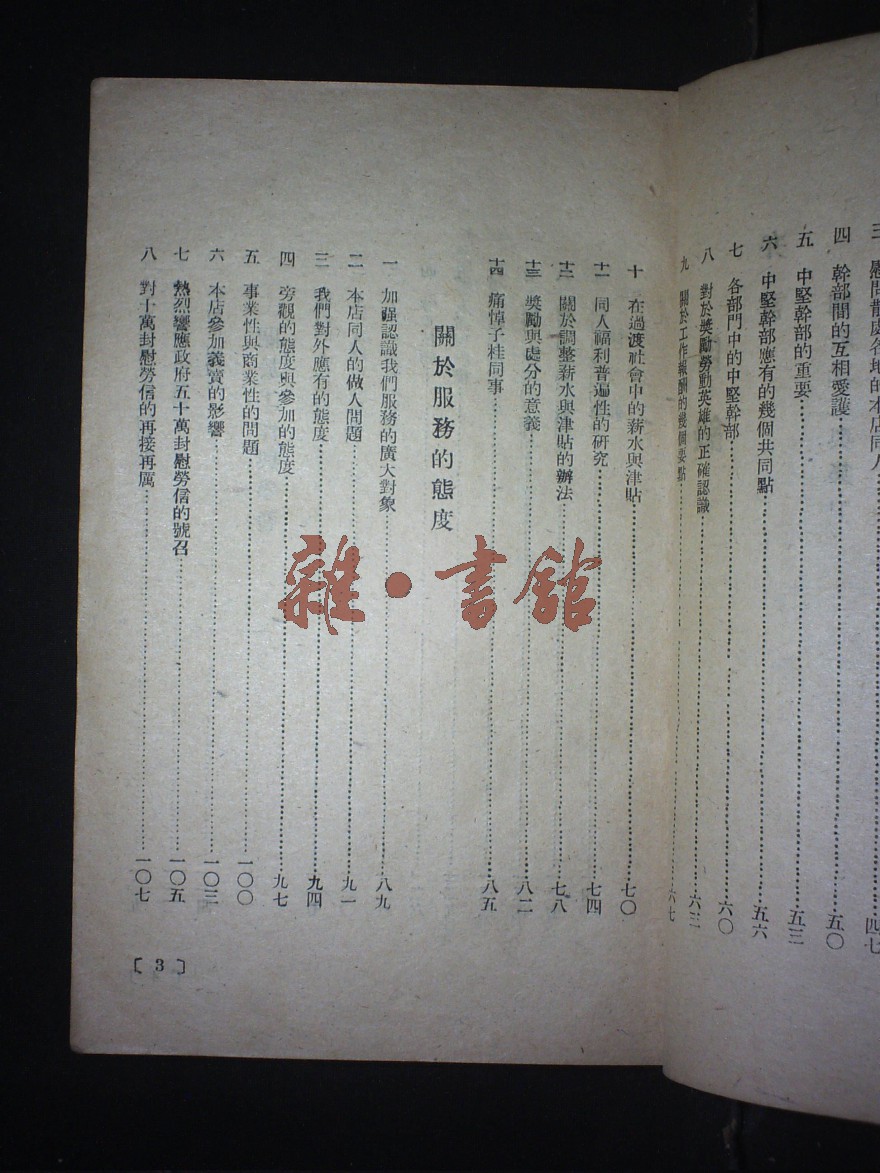 慰問散處各地的本店同人
四 幹部間的互相愛護……五〇
五 中堅幹部的重要……五三
六 中堅幹部應有的幾個共同點……五六
七 各部門中的中堅幹部……六〇
八 對於獎勵勞動英雄的正確認識……六三
九 關於工作報酬的幾個要點……六七
十 在過渡社會中的薪水與津貼……七〇
十一 同人福利普遍性的研究……七四
十二 關於調整薪水與津貼的辦法……七八
十三 獎勵與處分的意義……八二
十四 痛悼子桂同事……八五
關於服務的態度
一 加强認識我們服務的廣大對象……八九
二 本店同人的做人問題……九一
三 我們對外應有的態度……九四
四 旁觀的態度與參加的態度……九七
五 事業性與商業性的問題……一〇〇
六 本店參加義賣的影響……一〇三
七 熱烈響應政府五十萬封慰勞信的號召……一〇五
八 對十萬封慰勞信的再接再厲……一〇七
〔3〕
雜·書館